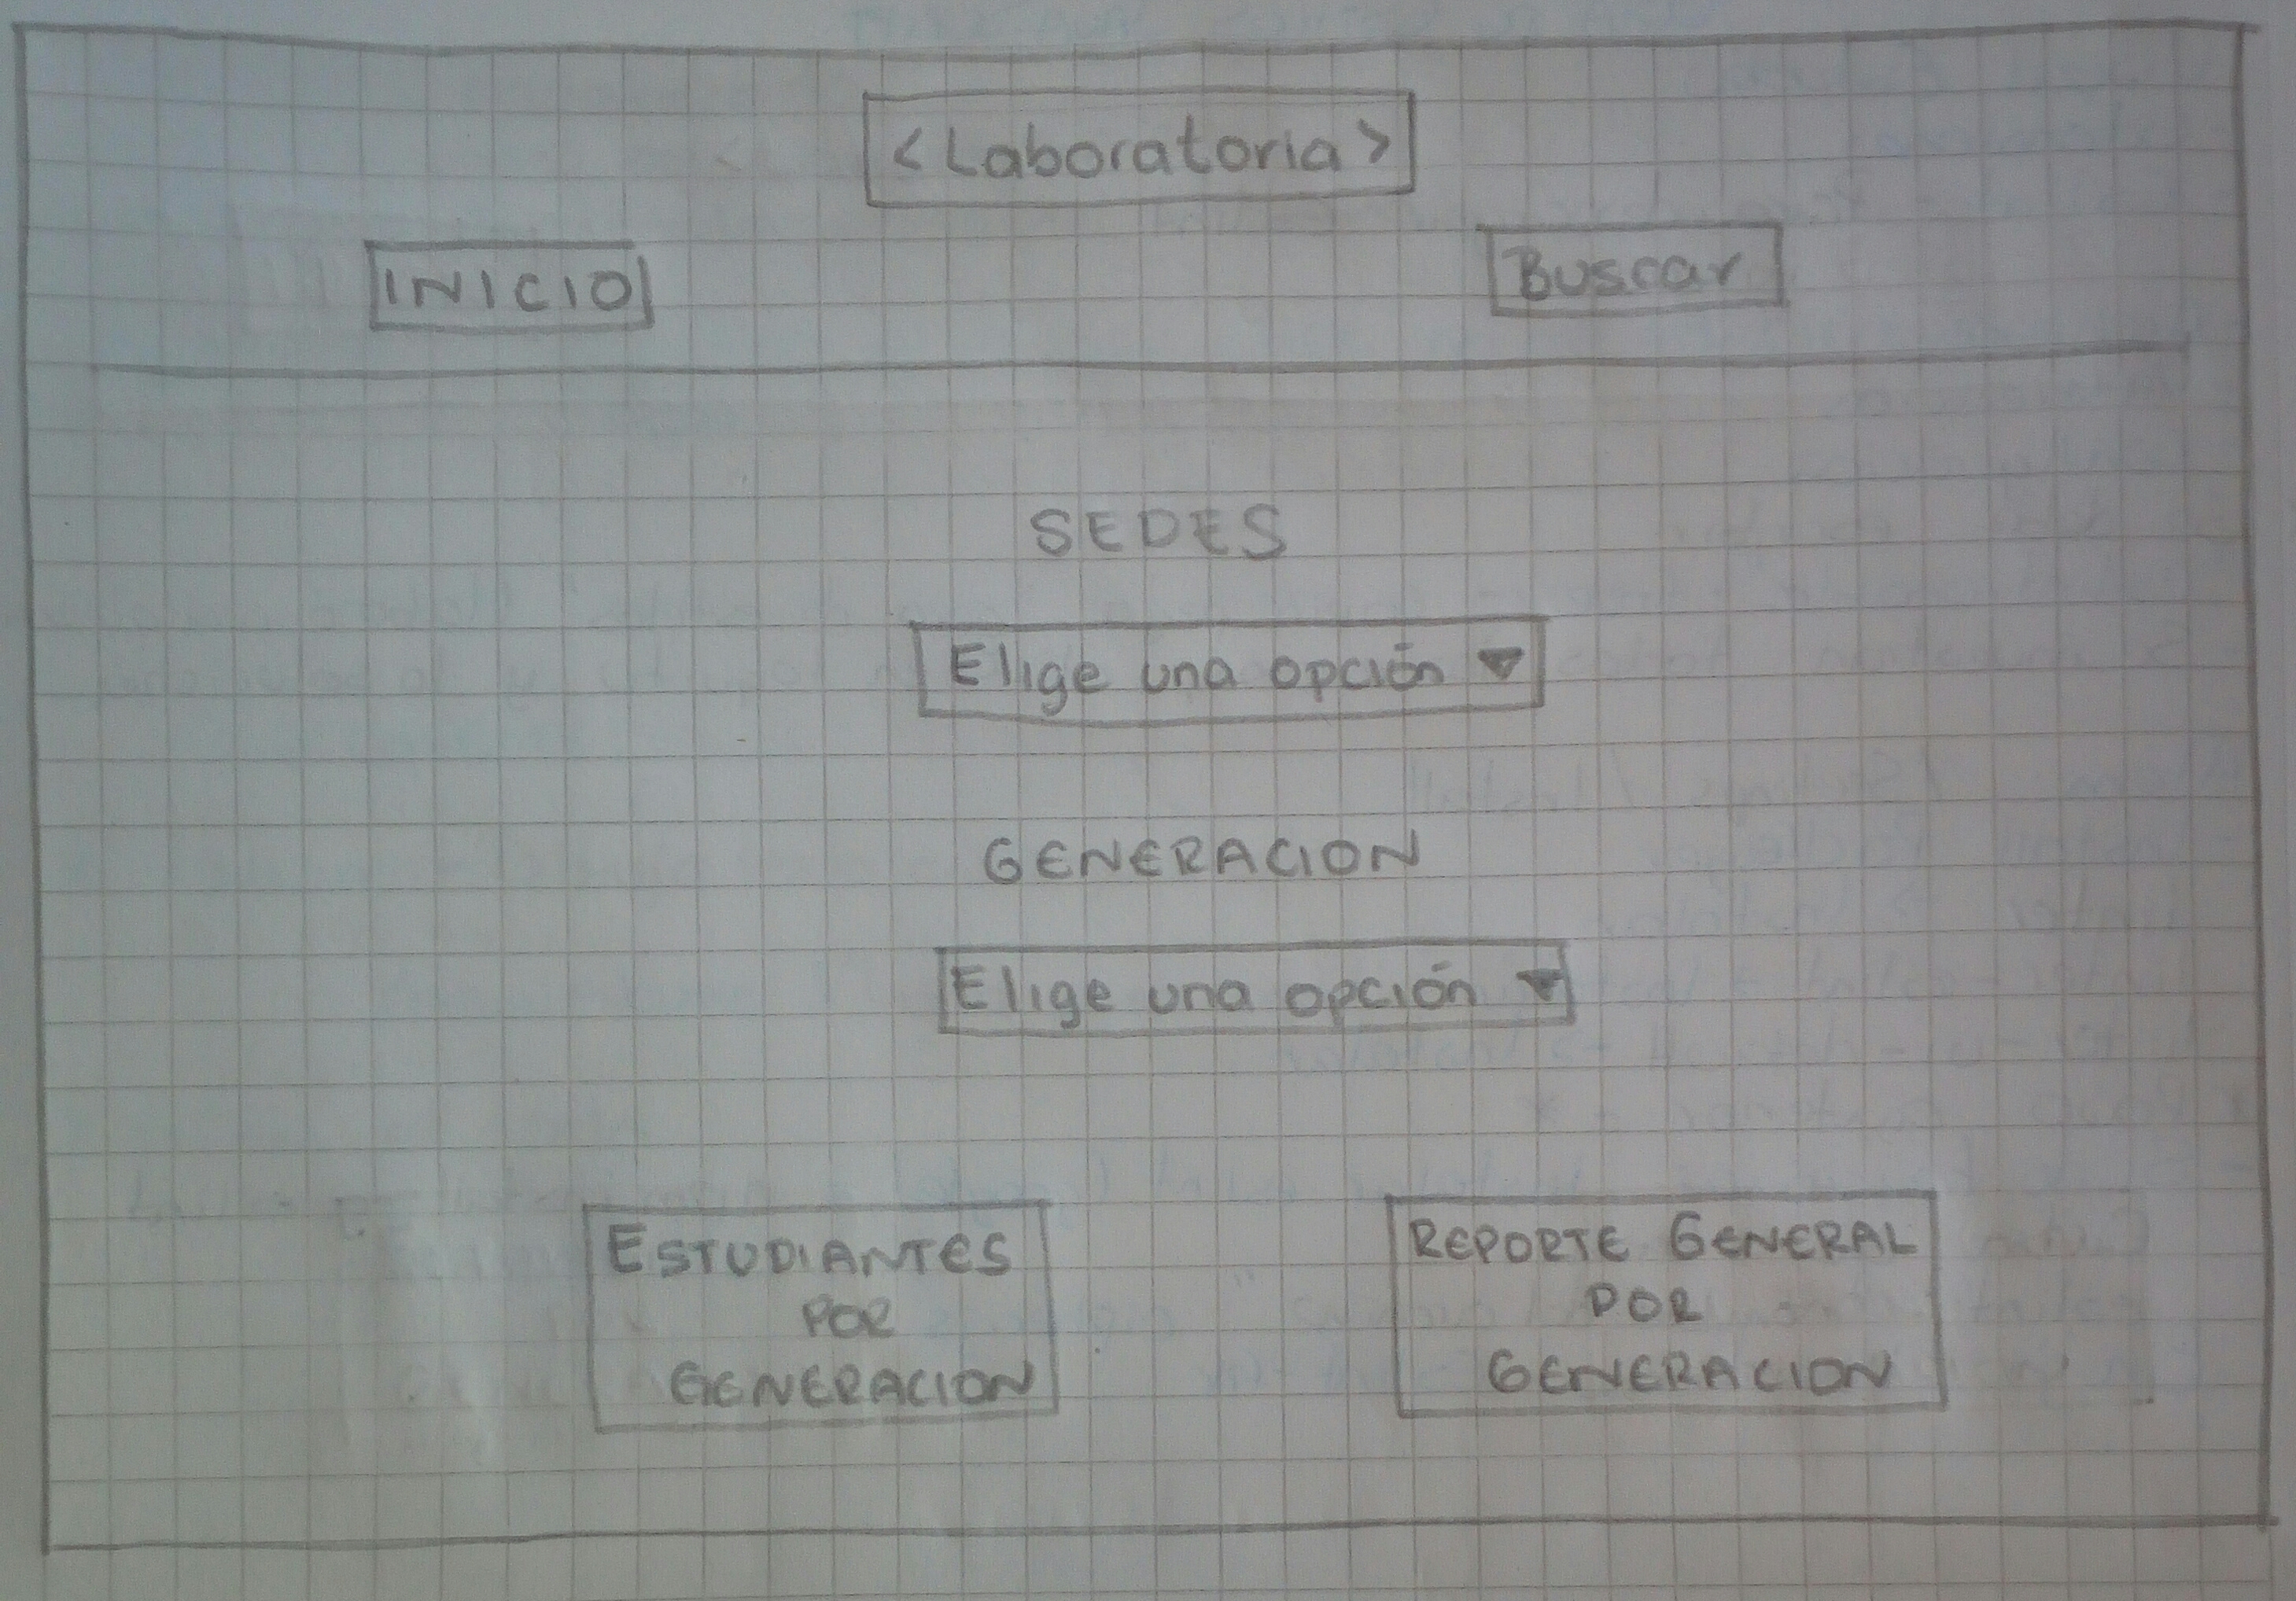 <Laboratoria>
INICIO
Buscar
SEDES
Elige una opción
GENERACION
Elige una opción
ESTUDIANTES
POR
GENERACION
REPORTE GENERAL
POR
GENERACION